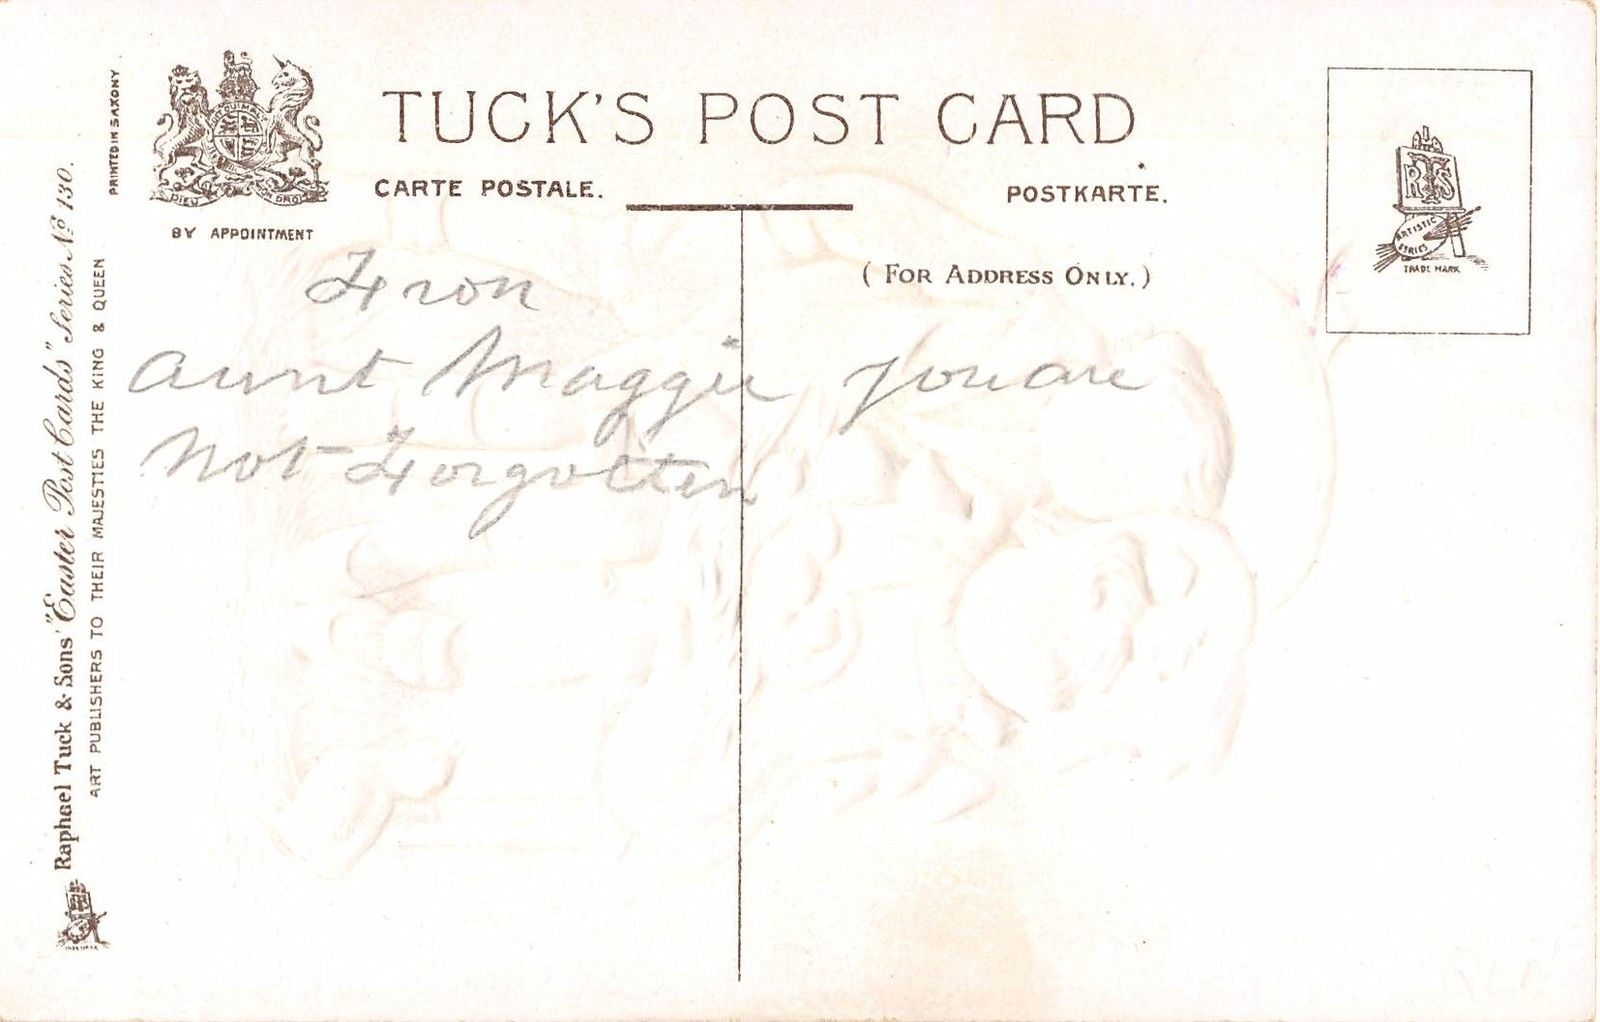 TUCK'S POST CARD
CARTE POSTALE.
POSTKARTE.
BY APPOINTMENT
(FOR ADDRESS ONLY.)
RTS
ARTISTIC
SERIES
TRADE MARK
PRINTED IN SAXONY
Raphael Tuck & Sons' "Easter Post Cards" Series No 130.
ART PUBLISHERS TO THEIR MAJESTIES THE KING & QUEEN
DIEU ET MON DROIT
From
Aunt Maggie you are
Not Forgotten